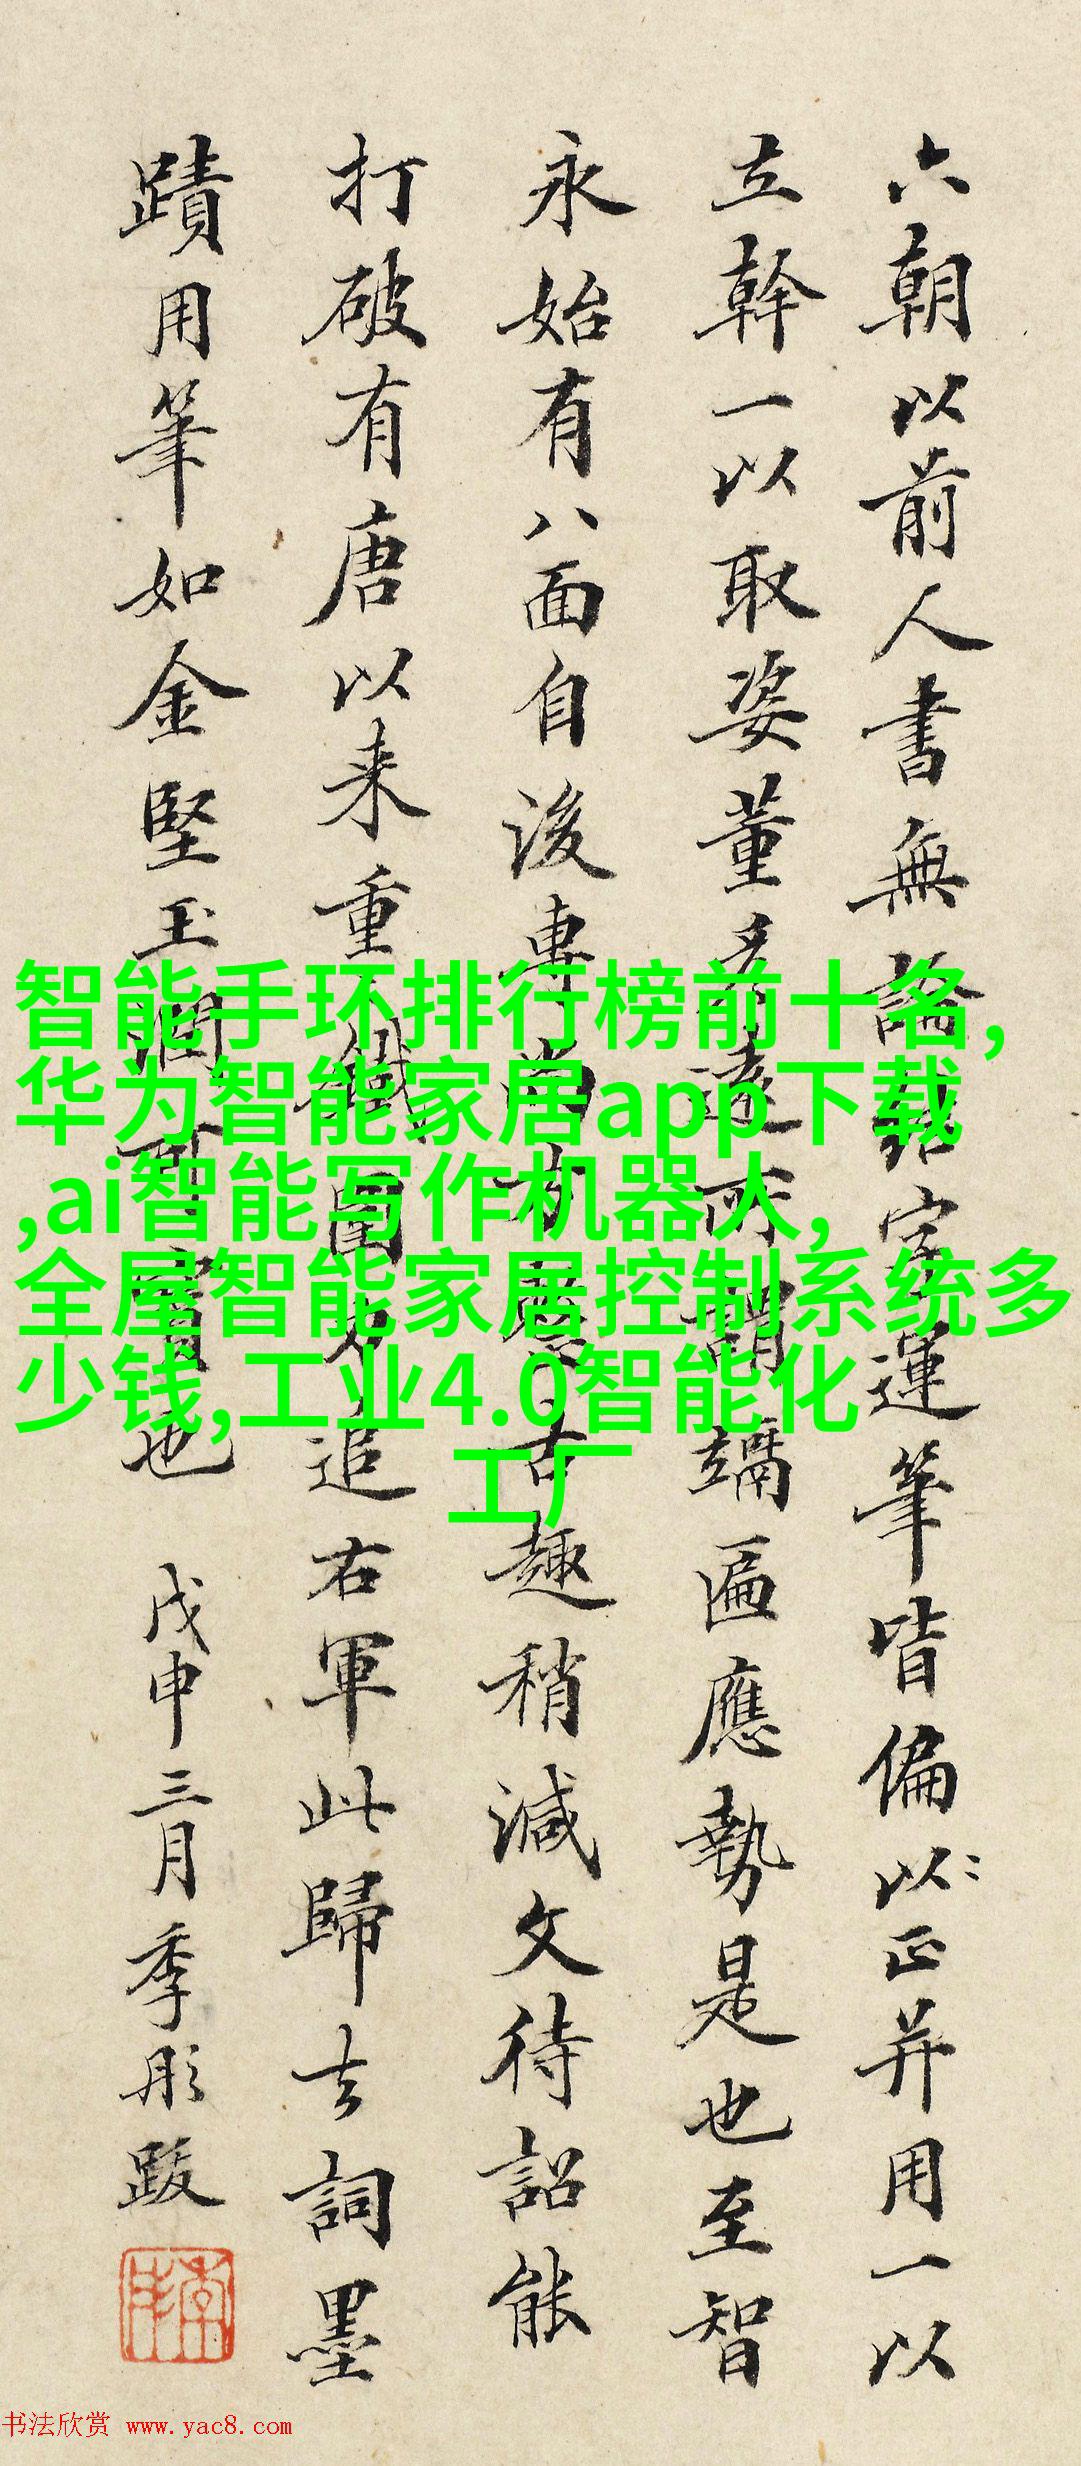 六朝以前人書無論結字運筆皆偏以正并用一以
立幹一以取姿董多遠所謂㔷匾應勢是也至智
永始有八面自後專尚方整古趣稍減文待詔能
打破有唐以来重鐵圍力追右軍此歸去詞墨
蹟用筆如金堅玉潤可寶也 戊申三月季彤跋
智能手环排行榜前十名,
华为智能家居app下载
,ai智能写作机器人,
全屋智能家居控制系统多
少钱,工业4.0智能化
工厂
书法欣赏 www.yac8.com